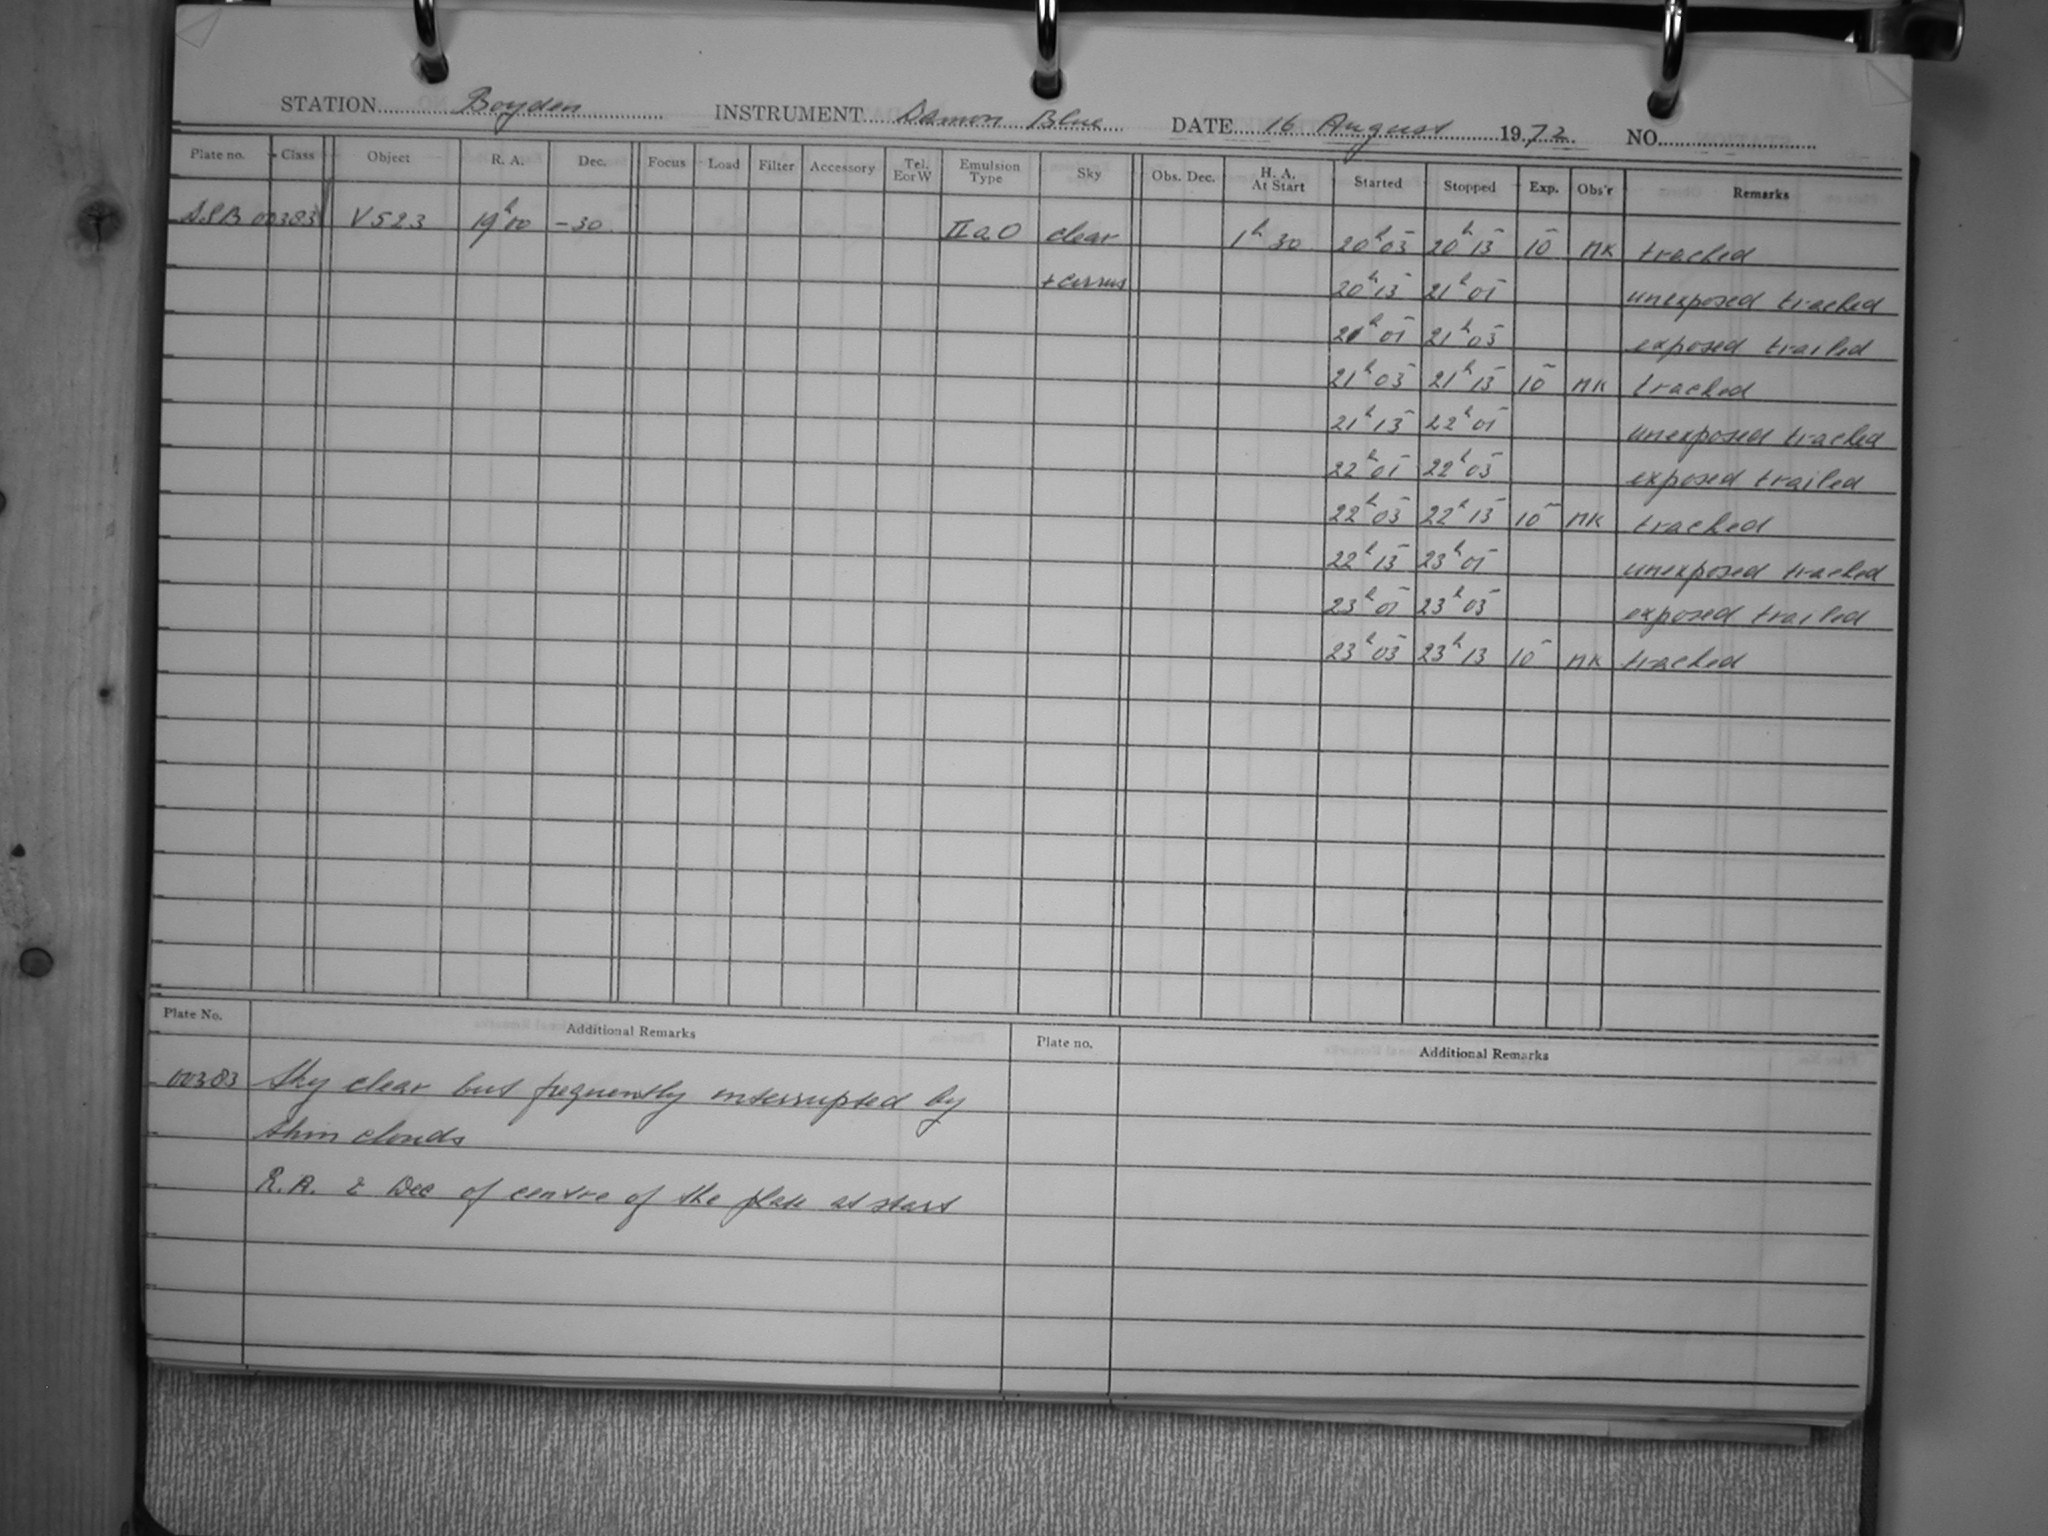 STATION Boyden INSTRUMENT Damon Blue DATE 16 August 1972 NO.
Plate no. Class Object R. A. Dec. Focus Load Filter Accessory Tel. E or W Emulsion Type Sky Obs. Dec. H. A. At Start Started Stopped Exp. Obs'r Remarks
DSB 00383 V523 19h00 -30 IIaO clear 1h 30 20h03 20h13 10 MK tracked
+ cirrus 20h13 21h01 unexposed tracked
21h01 21h03 exposed trailed
21h03 21h13 10 MK tracked
21h13 22h01 unexposed tracked
22h01 22h03 exposed trailed
22h03 22h13 10 MK tracked
22h13 23h01 unexposed tracked
23h01 23h03 exposed trailed
23h03 23h13 10 MK tracked
Plate No. Additional Remarks Plate no. Additional Remarks
00383 Sky clear but frequently interrupted by
thin clouds
R.A. & Dec of centre of the plate at start